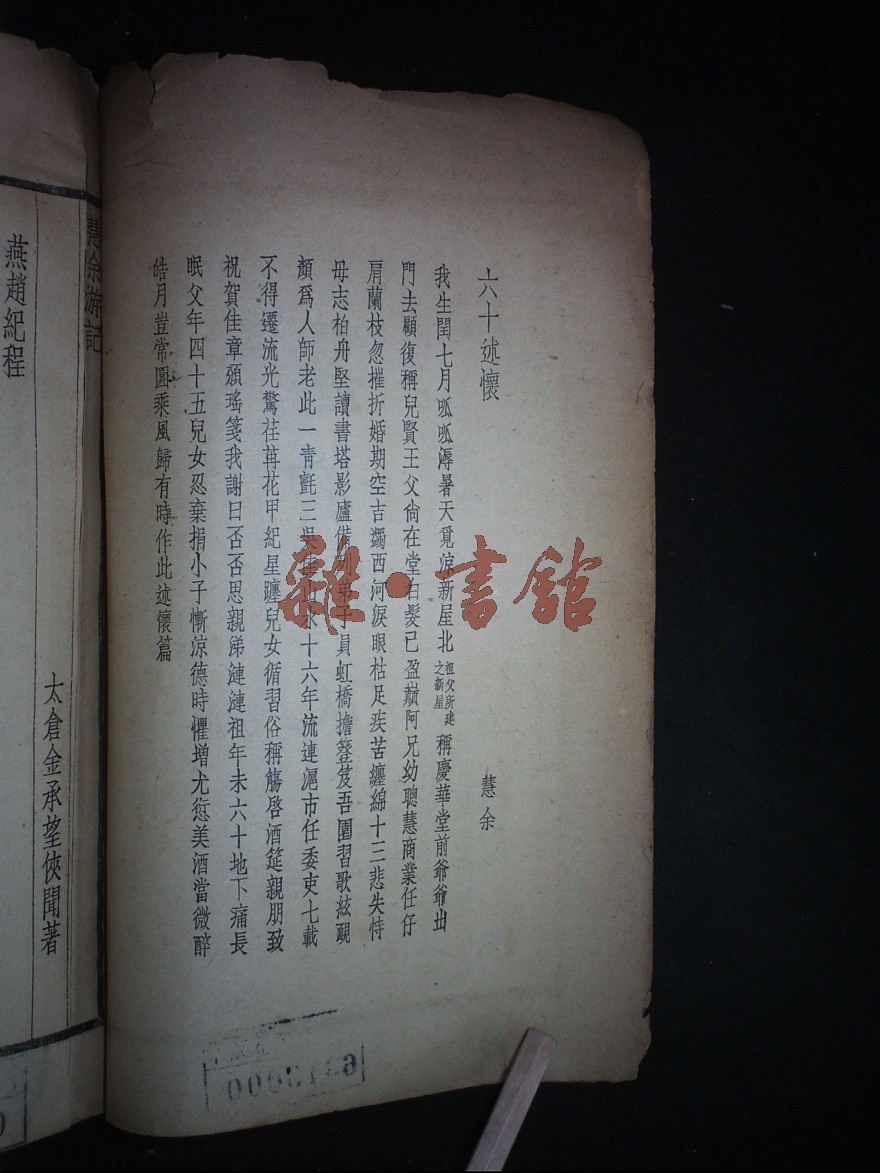 六十述懷
慧余
我生閏七月呱呱溽暑天覓涼新屋北祖父所建之新屋稱慶華堂前爺爺出
門去顧復稱兒賢王父尚在堂白髮已盈巔阿兄幼聰慧商業任仔
肩蘭枝忽摧折婚期空吉蠲西河淚眼枯足疾苦纏綿十三悲失恃
毋志柏舟堅讀書塔影廬備列弟子員虹橋擔簦笈吾園習歌絃靦
顏爲人師老此一青氈三吳佳山水十六年流連滬市任委吏七載
不得遷流光驚荏苒花甲紀星躔兒女循習俗稱觴啓酒筵親朋致
祝賀佳章頒瑤箋我謝曰否否思親涕漣漣祖年未六十地下痛長
眠父年四十五兒女忍棄捐小子慚涼德時懼增尤愆美酒當微醉
皓月豈常圓乘風歸有時作此述懷篇
慧余游記
太倉金承望俠聞著
燕趙紀程
雜·書館